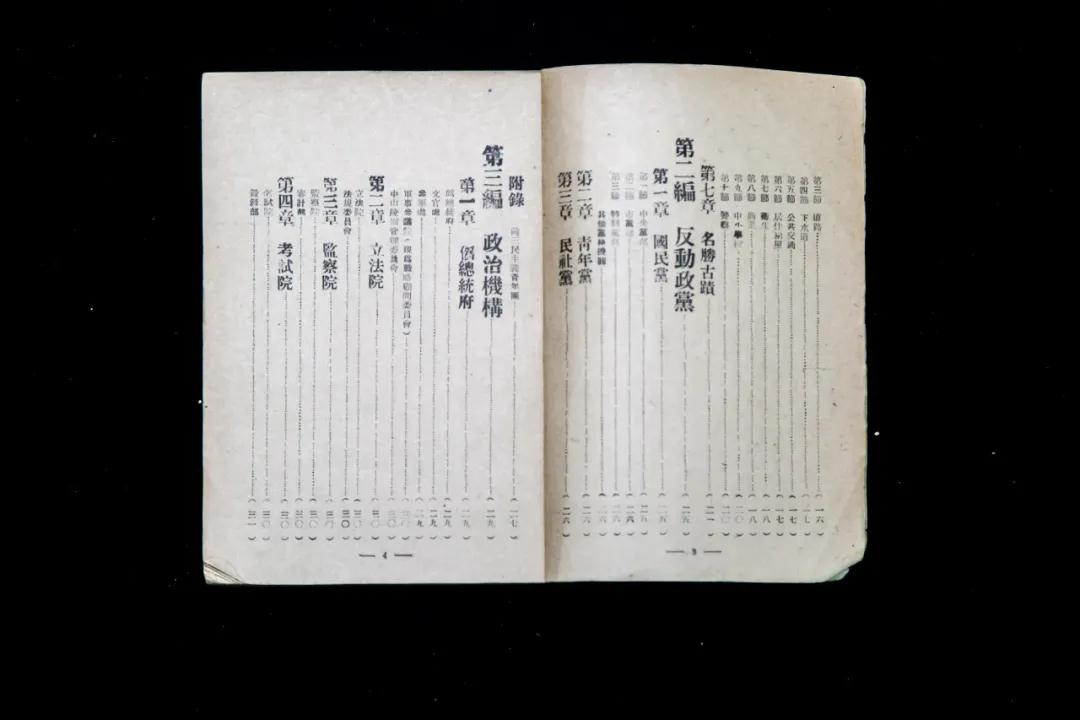 第三節 道路……（一六）
第四節 下水道……（一七）
第五節 公共交通……（一七）
第六節 居住房屋……（一七）
第七節 衛生……（一八）
第八節……（一八）
第九節 中小學校……（二〇）
第十節 警察……（二〇）
第七章 名勝古蹟……（二一）
第二編 反動政黨……（二五）
第一章 國民黨……（二五）
第一節 中央黨部……（二五）
第二節 市黨部……（二六）
第三節 特別黨部……（二六）
其他黨務機關……（二六）
第二章 靑年黨……（二六）
第三章 民社黨……（二六）
— 3 —
附錄 前三民主義靑年團……（二七）
第三編 政治機構……（二九）
第一章 僞總統府……（二九）
僞總統府……（二九）
文官處……（二九）
參軍處……（二九）
軍事參議院（現爲戰略顧問委員會）……（三〇）
中山陵園管理委員會……（三〇）
第二章 立法院……（三〇）
立法院……（三〇）
法規委員會……（三〇）
第三章 監察院……（三〇）
監察院……（三〇）
審計部……（三〇）
第四章 考試院……（三〇）
考試院……（三〇）
銓敘部……（三一）
— 4 —